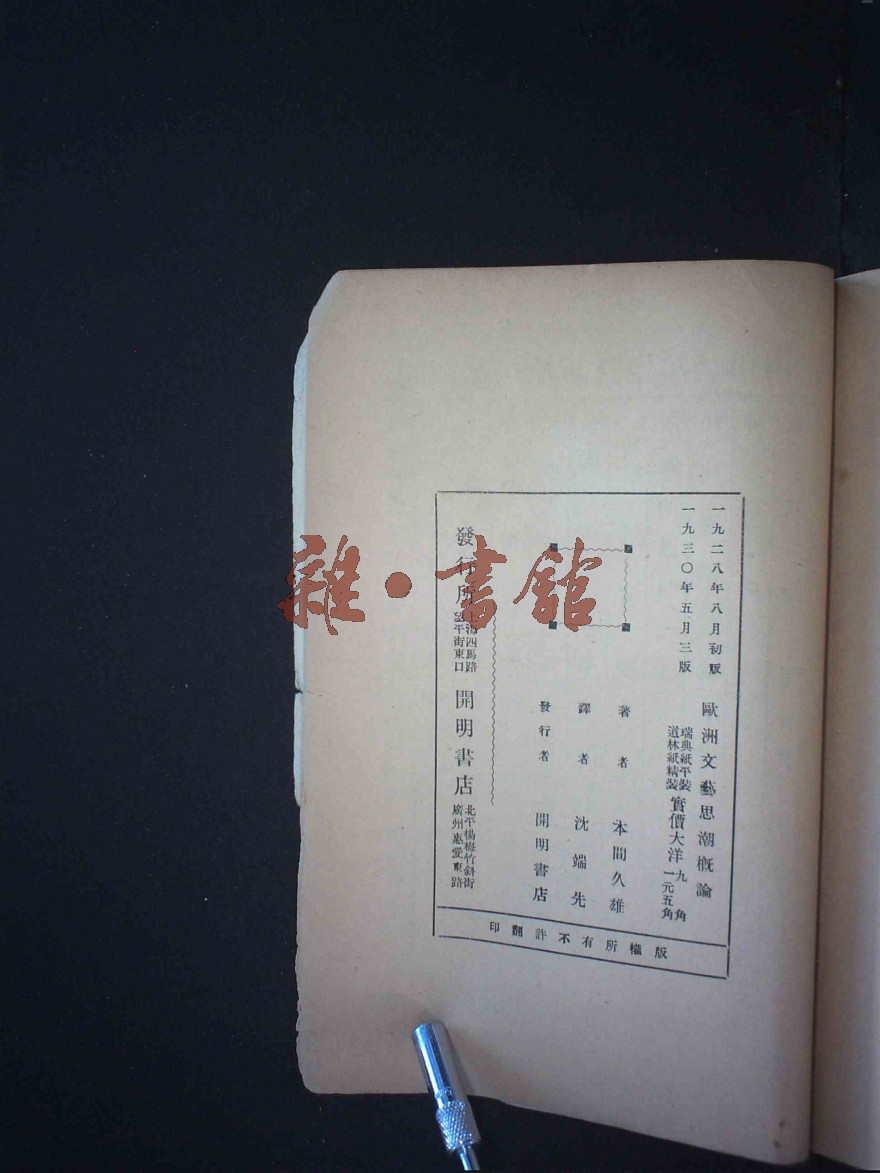 一九二八年八月初版
一九三〇年五月三版
歐洲文藝思潮概論
瑞典紙平裝
道林紙精裝
實價大洋
九角
一元五角
著者 本間久雄
譯者 沈端先
發行者 開明書店
發行所
上海四馬路
望平街東口
開明書店
北平楊梅竹斜街
廣州惠愛東路
版權所有不許翻印
雜·書館